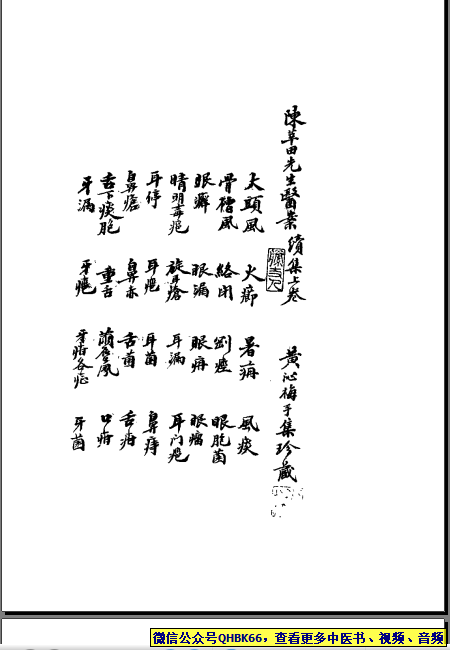 陳莘田先生醫案續集上卷
黃沁梅手集珍藏
大頭風 火癤 暑痈 風痰
骨槽風 絡閉 劉痙 眼胞菌
眼癬 眼漏 眼痈 眼瘤
睛明毒疤 旋耳瘡 耳漏 耳门疤
耳停 耳疤 耳菌 鼻痔
鼻瘡 鼻赤 舌菌 舌疳
舌下痰胞 重舌 風 口疳
牙漏 牙疤 牙疳各症 牙菌
微信公众号QHBK66，查看更多中医书、视频、音频